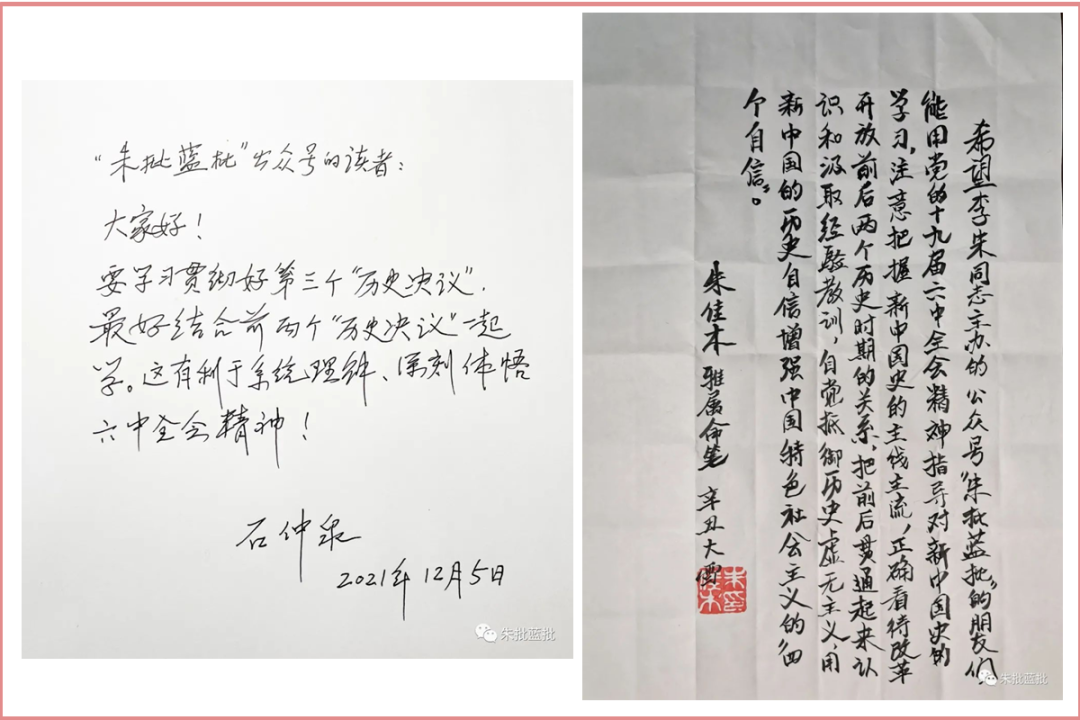 “朱批蓝批”公众号的读者：
大家好！
要学习贯彻好第三个“历史决议”，
最好结合前两个“历史决议”一起
学。这有利于系统理解、深刻体悟
六中全会精神！
石仲泉
2021年12月5日
朱批蓝批
希望李朱同志主办的公众号“朱批蓝批”的朋友们
能用党的十九届六中全会精神指导对新中国史的
学习，注意把握新中国史的主线主流，正确看待改革
开放前后两个历史时期的关系，把前后贯通起来认
识和汲取经验教训，自觉抵御历史虚无主义，用
新中国的历史自信增强中国特色社会主义的“四
个自信”。
朱佳木 雅属命笔 辛丑大雪
朱批蓝批